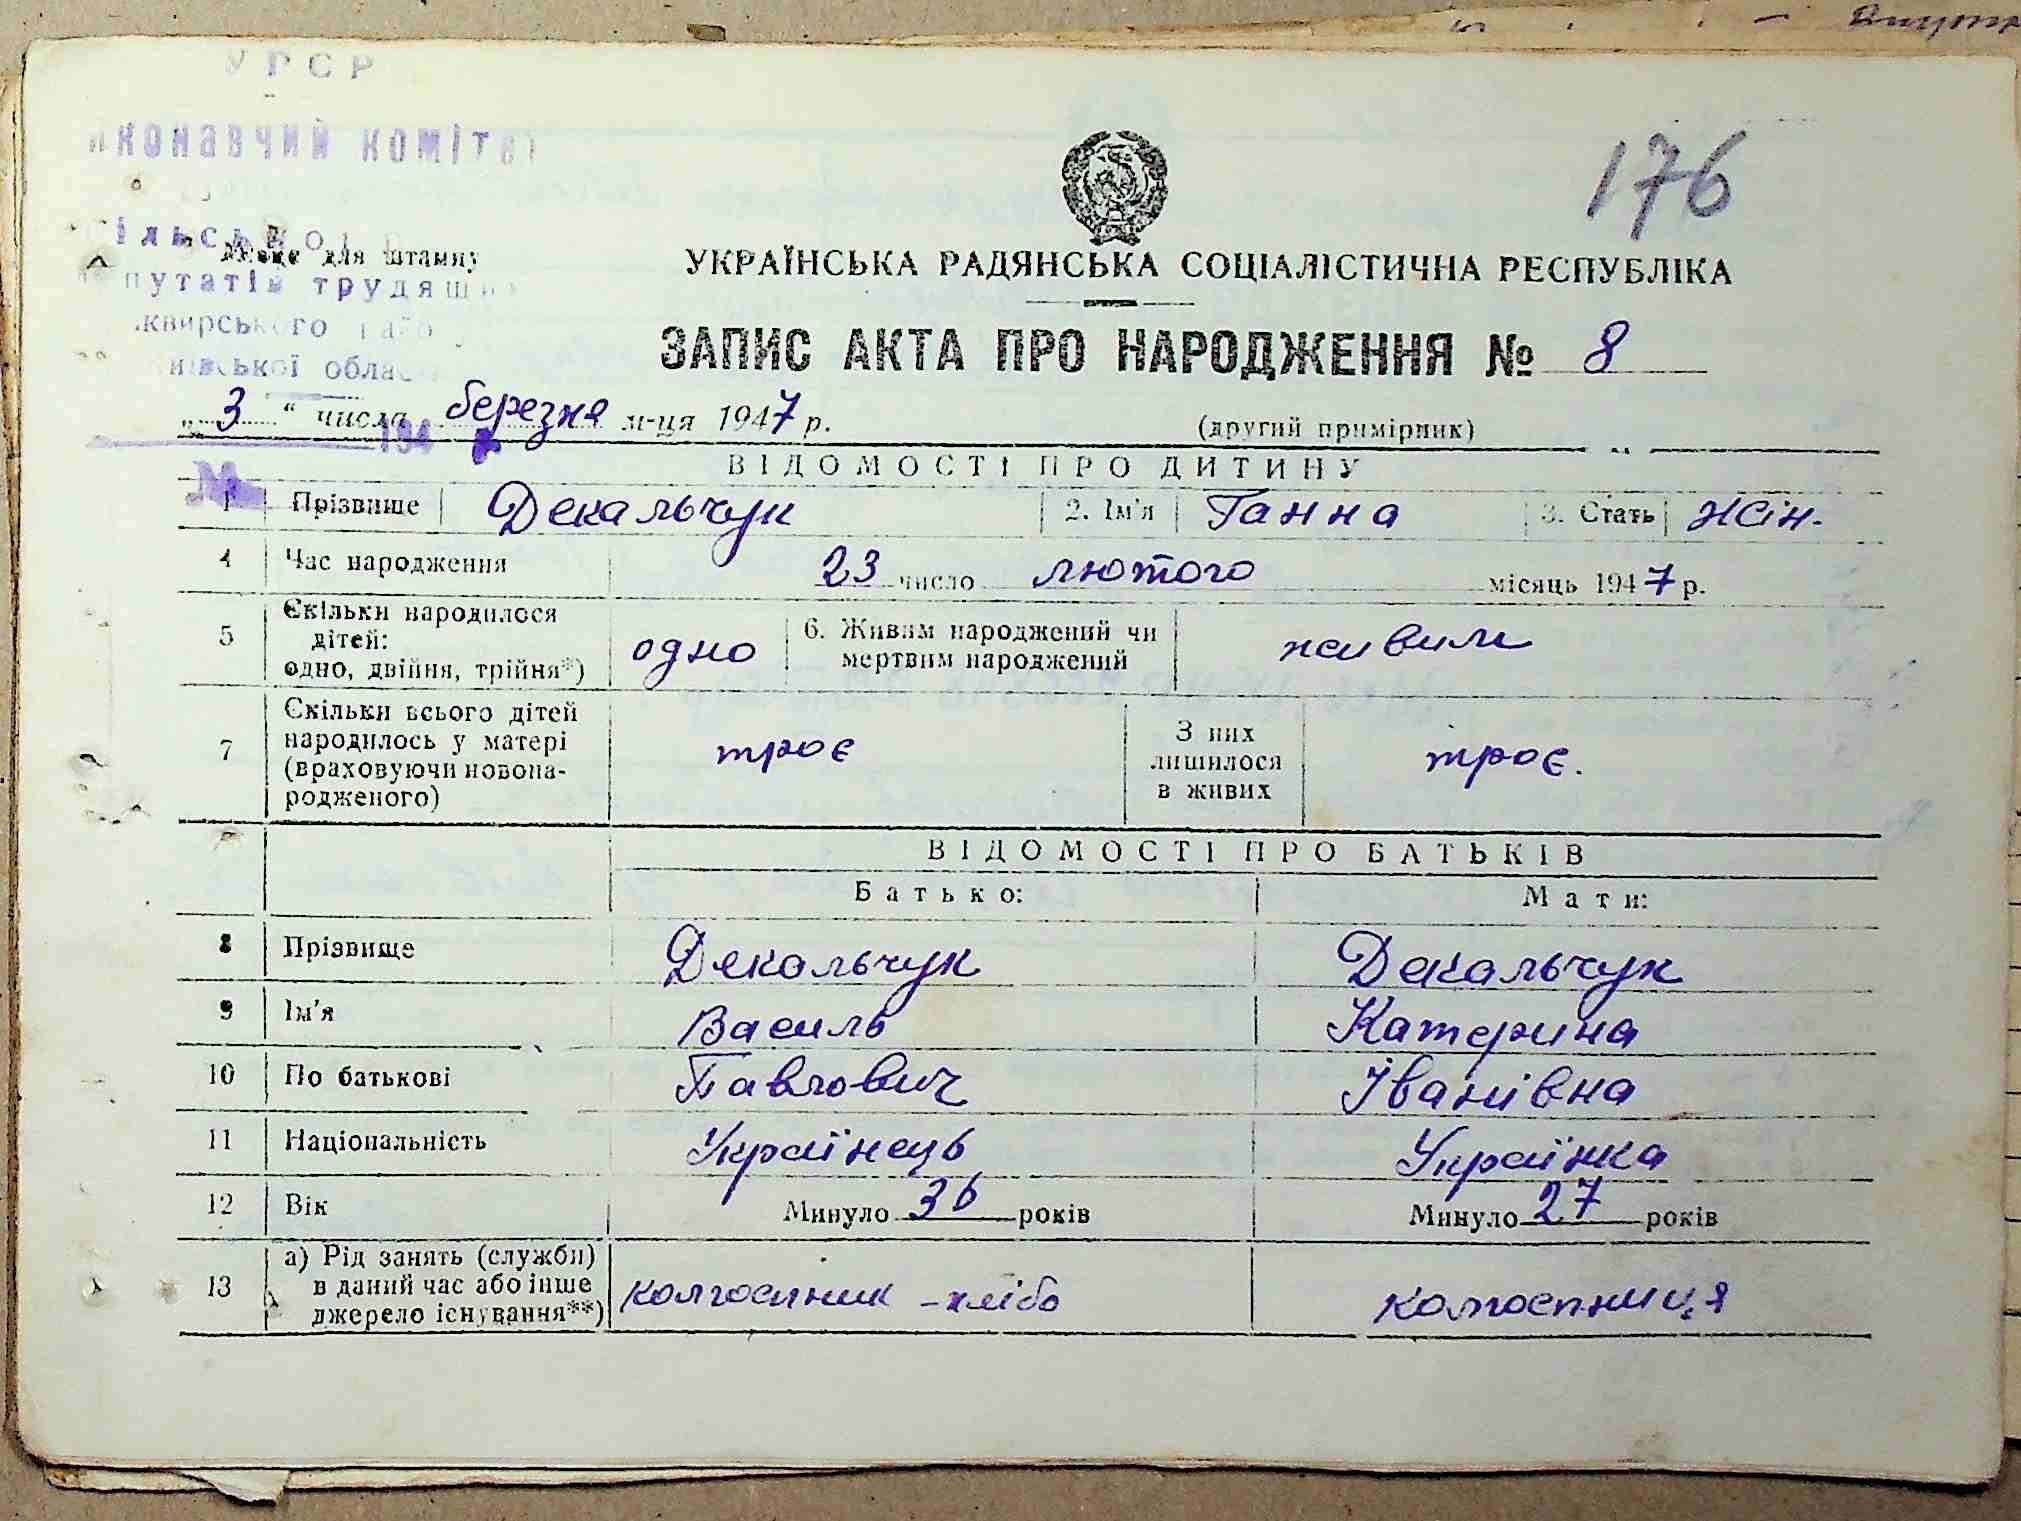 УРСР
176
УКРАЇНСЬКА РАДЯНСЬКА СОЦІАЛІСТИЧНА РЕСПУБЛІКА
Місце для штампу
путатів трудящи
ЗАПИС АКТА ПРО НАРОДЖЕННЯ № 8
„3“ числа березня м-ця 1947 р.
(другий примірник)
194
ВІДОМОСТІ ПРО ДИТИНУ
1 Прізвище Декальчук 2. Ім'я Ганна 3. Стать Жін.
4 Час народження 23 число лютого місяць 1947 р.
5 Скільки народилося дітей: одно, двійня, трійня*) одно 6. Живим народжений чи мертвим народжений живим
7 Скільки всього дітей народилось у матері (враховуючи новонародженого) троє З них лишилося в живих троє.
ВІДОМОСТІ ПРО БАТЬКІВ
Батько: Мати:
8 Прізвище Декальчук Декальчук
9 Ім'я Василь Катерина
10 По батькові Павлович Іванівна
11 Національність Українець Українка
12 Вік Минуло 36 років Минуло 27 років
13 а) Рід занять (служби) в даний час або інше джерело існування**) колгоспник - хлібо колгоспниця